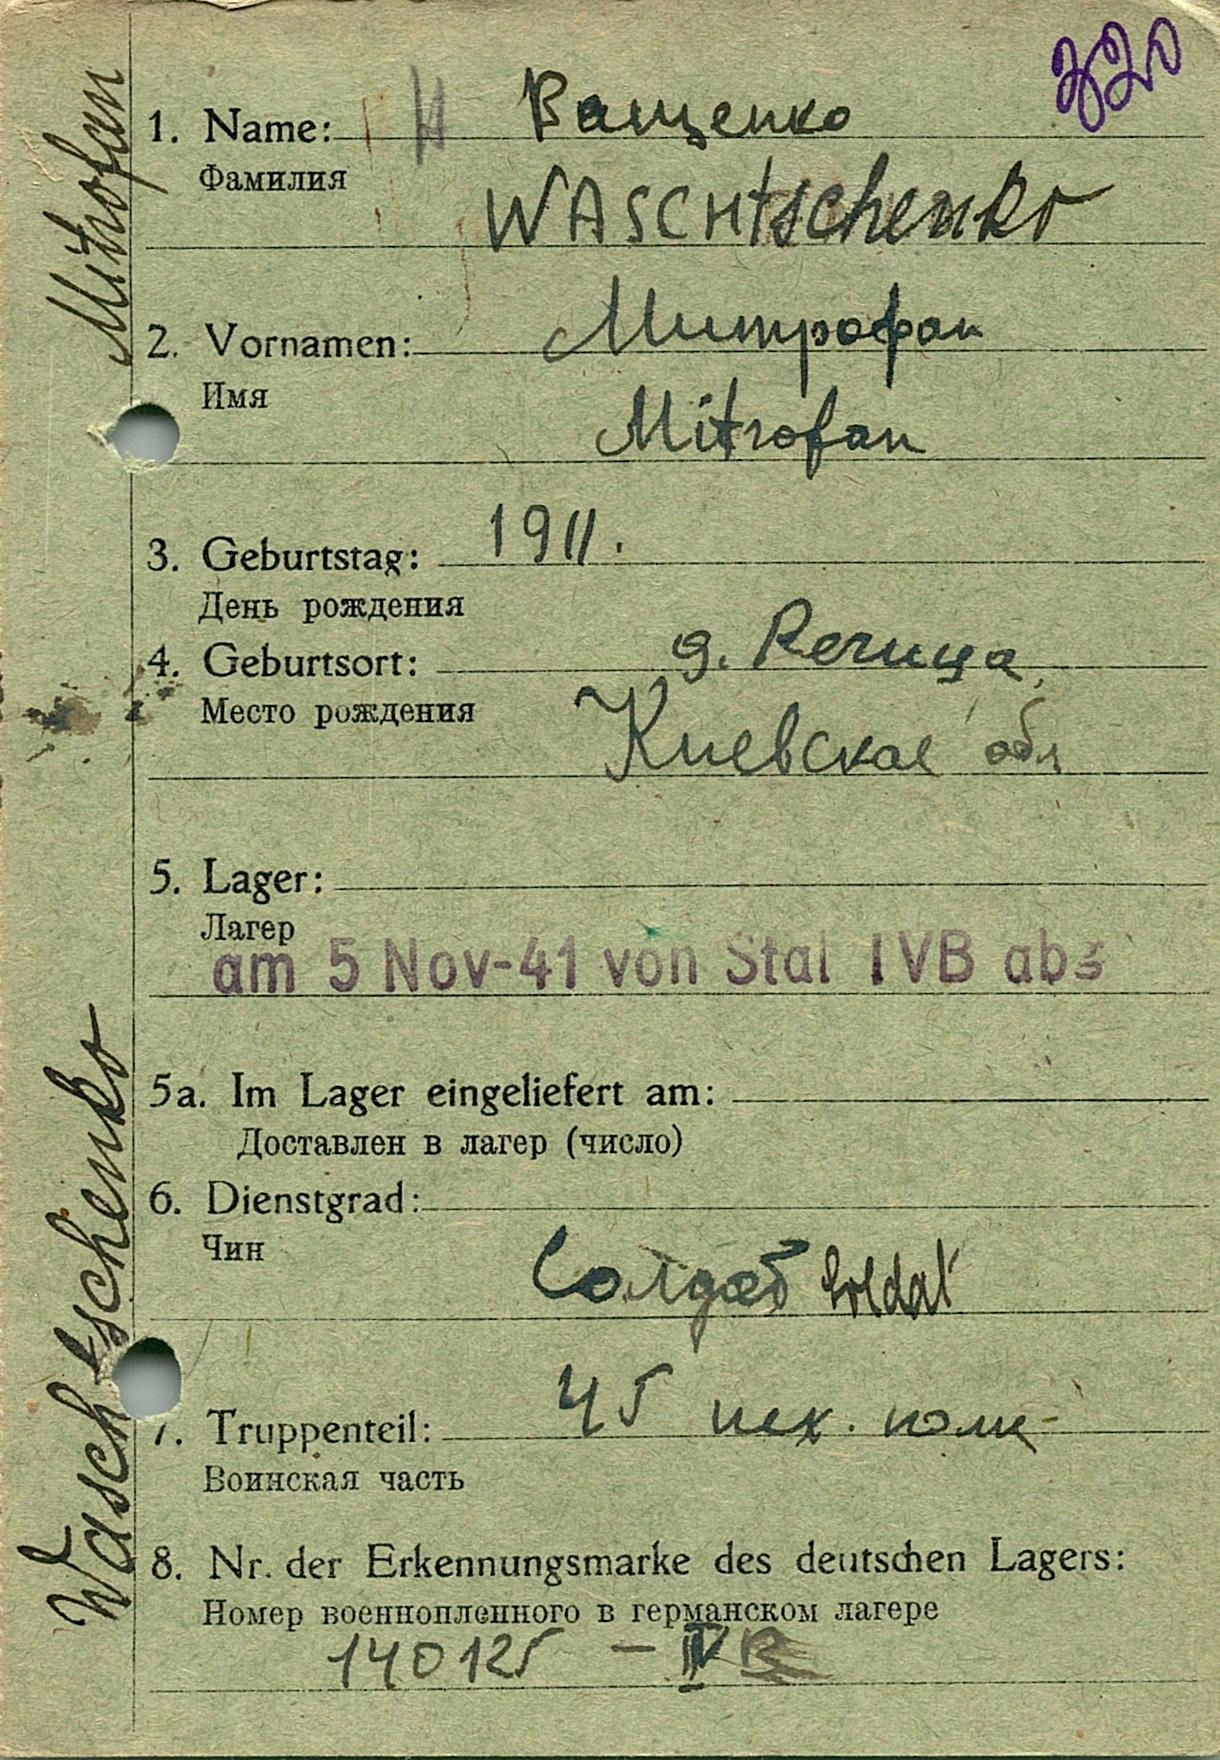 320
1. Name: Ващенко
Фамилия
WASCHtschenko
2. Vornamen: Митрофан
Имя
Mitrofan
3. Geburtstag: 1911.
День рождения
4. Geburtsort: д. Речица,
Место рождения
Киевское обл
5. Lager:
Лагер
am 5 Nov-41 von Stal IVB abs
5a. Im Lager eingeliefert am:
Доставлен в лагер (число)
6. Dienstgrad:
Чин
Солдат Soldat
7. Truppenteil: 45 пех. полк
Воинская часть
8. Nr. der Erkennungsmarke des deutschen Lagers:
Номер военнопленного в германском лагере
140125 – IV B
Waschtschenko Mitrofan